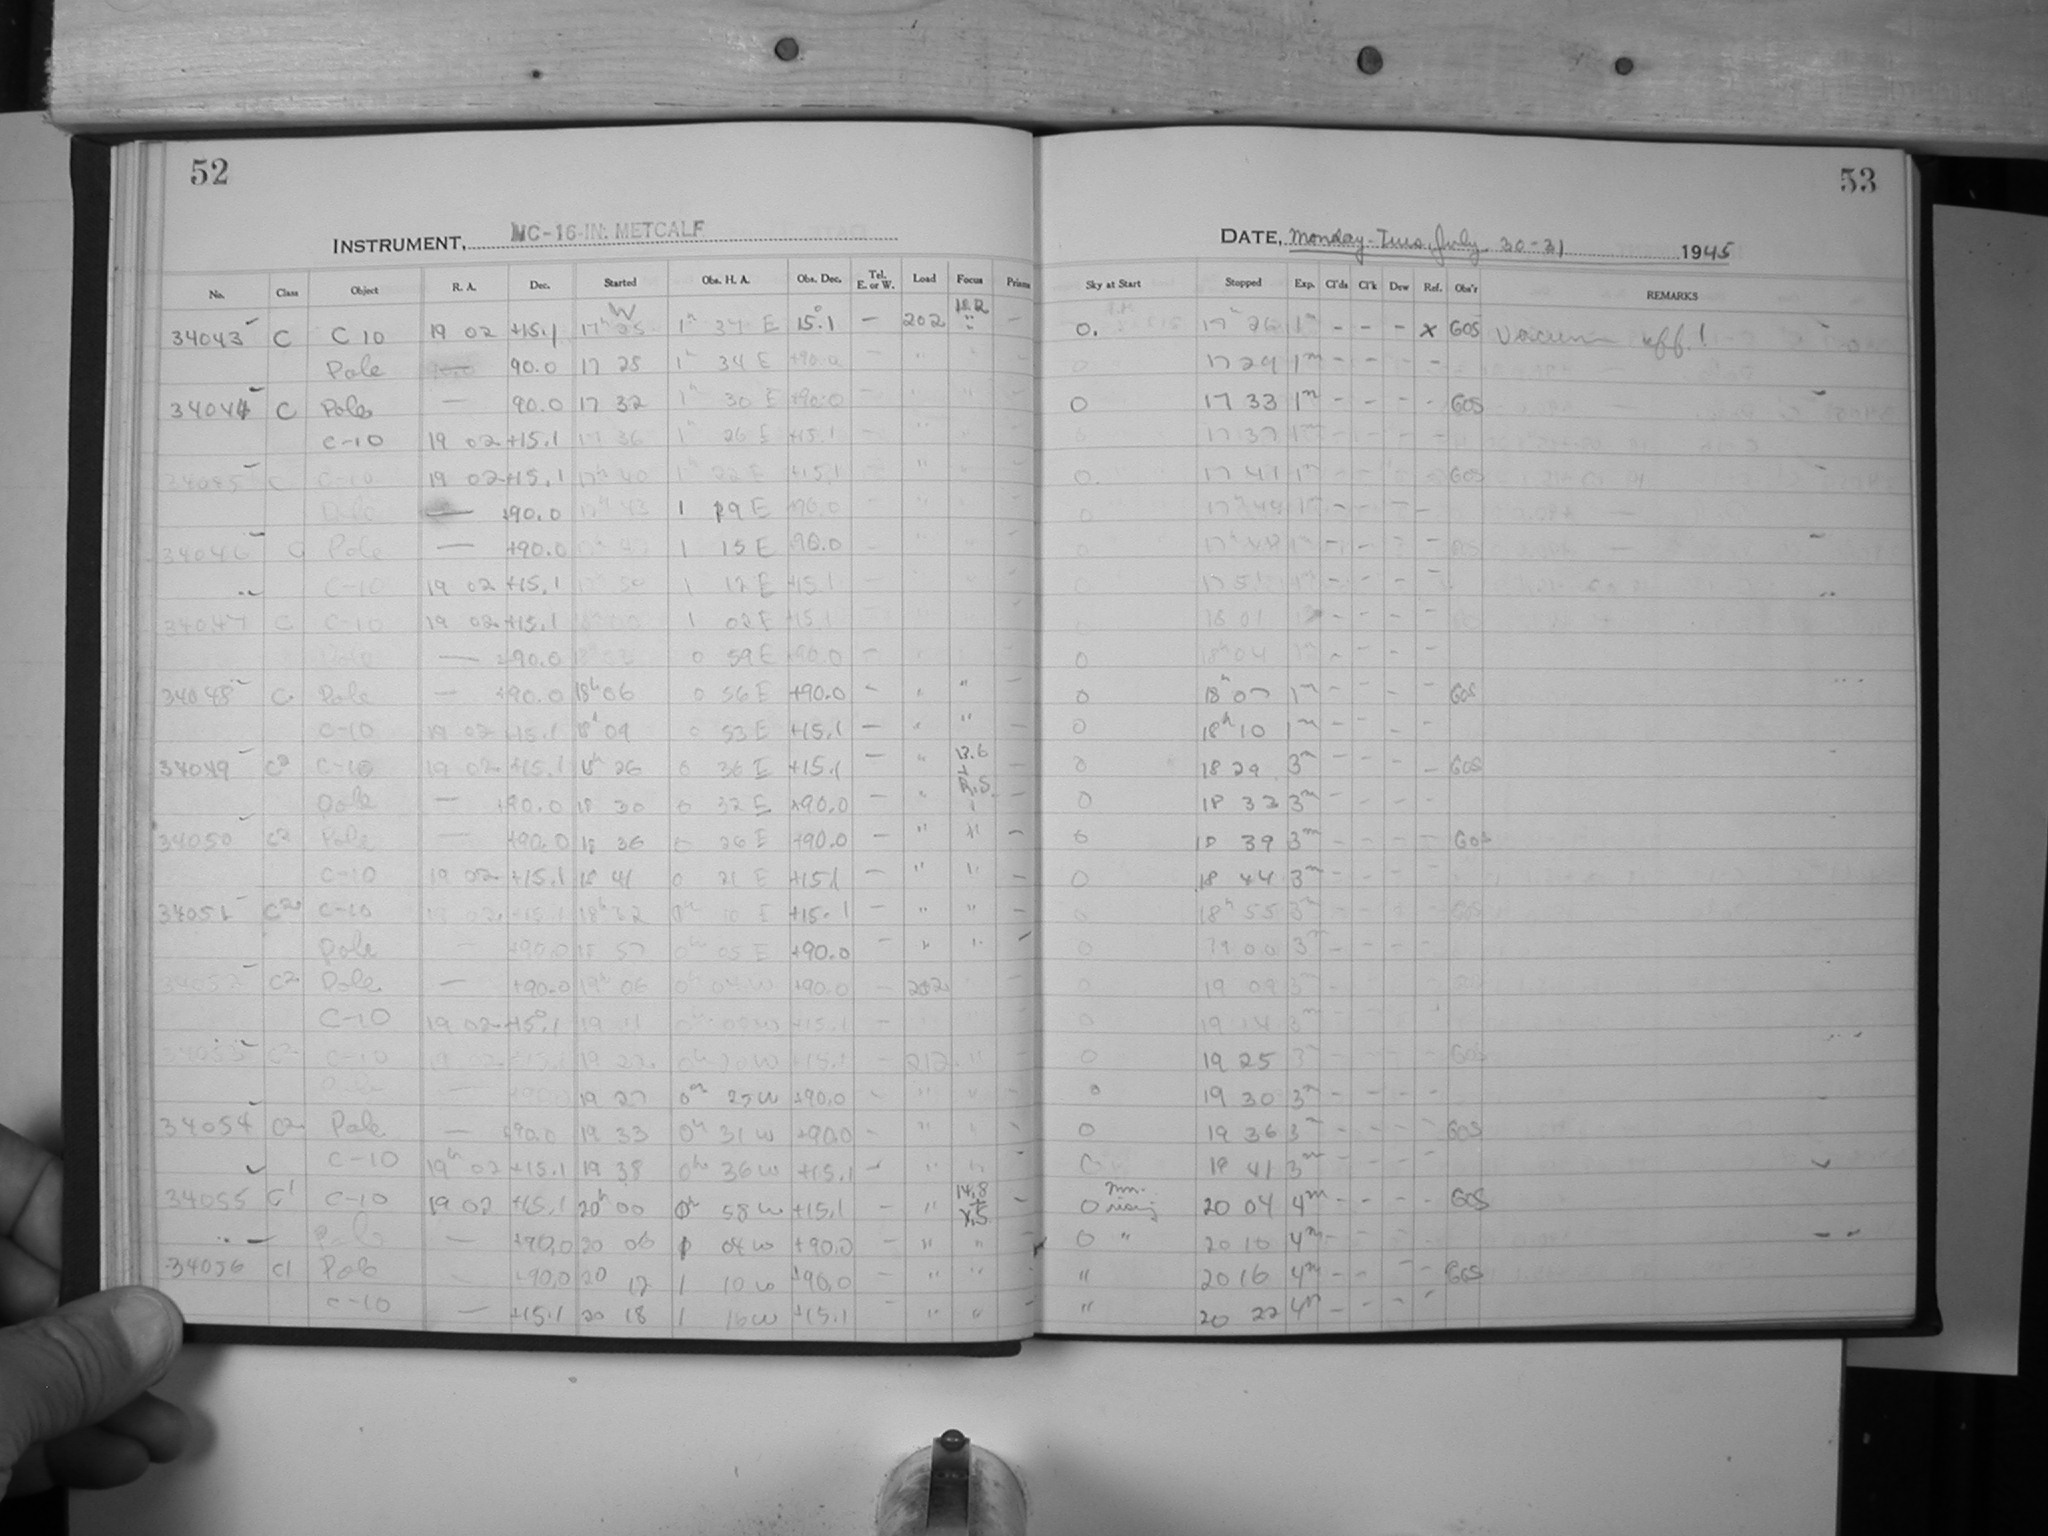 52
53
INSTRUMENT, MC-16-IN. METCALF
DATE, Monday - Tues. July 30-31 1945
No. Class Object R. A. Dec. Started Obs. H. A. Obs. Dec. Tel. E. or W. Load Focus Prism Sky at Start Stopped Exp. Cl'ds Cl'k Dew Ref. Obs'r REMARKS
34043 C C 10 19 02 +15.1 1h E 15°.1 — 202 — 0. 17h 26 1m - - - x GOS Vacuum off!
Pole 90.0 17 28 1h 34 E +90.0 0 17 29 1m - - - -
34044 C Pole — 90.0 17 32 1h 30 E +90.0 0 17 33 1m - - - - GOS
C-10 19 02 +15.1 17 36 1h 26 E +15.1 0 17 37 1m - - - -
34045 C C-10 19 02 +15.1 17h 40 1h 22 E +15.1 0. 17 41 1m GOS
Pole — +90.0 17h 43 1 19 E +90.0 0 17h 44 1m
34046 C Pole — +90.0 1 15 E +90.0 0
C-10 19 02 +15.1 17h 50 1 12 E +15.1 0 17 51
34047 C C-10 19 02 +15.1 1 02 E +15.1 18 01
Pole — +90.0 0 59 E +90.0 0 18h 04 1m
34048 C Pole — +90.0 18h 06 0 56 E +90.0 - " " - 0 18h 07 1m - - - - GOS
C-10 19 02 +15.1 18h 09 0 53 E +15.1 — " " — 0 18h 10 1m - - - -
34049 C2 C-10 19 02 +15.1 18h 26 0 36 E +15.1 — " 13.6 — 0 18 29 3m - - - - GOS
Pole — +90.0 18 30 0 32 E +90.0 — " — 0 18 33 3m - - - -
34050 C2 Pole — +90.0 18 36 0 26 E +90.0 — " " — 0 18 39 3m - - - - GOS
C-10 19 02 +15.1 18 41 0 21 E +15.1 — " " — 0 18 44 3m - - - -
34051 C2 C-10 19 02 +15.1 0h 10 E +15.1 — " " — 0 18h 55 3m - - - - GOS
Pole — +90.0 18 57 0h 05 E +90.0 — " " — 0 19 00 3m - - - -
34052 C2 Pole — +90.0 19h 06 0h 04 W +90.0 — 202 0 19 09 3m
C-10 19 02 +15°.1 19 11 0h 09 W +15.1 — 0 19 14 3m
34053 C2 C-10 19 02 +15.1 19 22 0h 20 W +15.1 — 212 " — 0 19 25 3m GOS
Pole — +90.0 19 27 0h 25 W +90.0 - " " - 0 19 30 3m - - - -
34054 C2 Pole — +90.0 19 33 0h 31 W +90.0 - " " - 0 19 36 3m - - - - GOS
C-10 19h 02 +15.1 19 38 0h 36 W +15.1 - " " - 19 41 3m - - - -
34055 C1 C-10 19 02 +15.1 20h 00 0h 58 W +15.1 — " 14.8 — 0 rising 20 04 4m - - - - GOS
Pole — +90.0 20 06 1 04 W +90.0 — " " — 0 " 20 10 4m - - - -
34056 C1 Pole - +90.0 20 12 1 10 W +90.0 — " " — " 20 16 4m - - - - GOS
C-10 — +15.1 20 18 1 16 W +15.1 — " " — " 20 22 4m - - - -